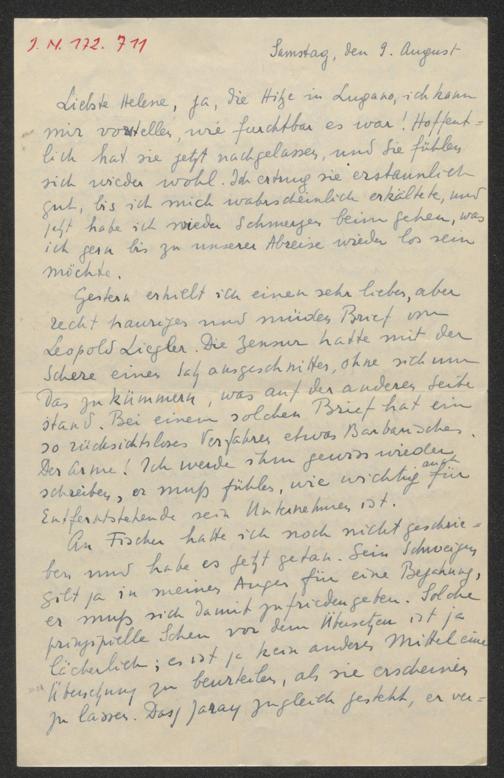 J. N. 172. 711
Samstag, den 9. August
Liebste Helene, ja, die Hitze in Lugano, ich kann
mir vorstellen, wie furchtbar es war! Hoffent=
lich hat sie jetzt nachgelassen, und Sie fühlen
sich wieder wohl. Ich ertrug sie erstaunlich
gut, bis ich mich wahrscheinlich erkältete, und
jetzt habe ich wieder Schmerzen beim gehen, was
ich gern bis zu unserer Abreise wieder los sein
möchte.
Gestern erhielt ich einen sehr lieben, aber
recht traurigen und müden Brief von
Leopold Liegler. Die Zensur hatte mit der
Schere einen Satz ausgeschnitten, ohne sich um
Das zu kümmern, was auf der anderen Seite
stand. Bei einem solchen Brief hat ein
so rücksichtsloses Verfahren etwas Barbarisches.
Der Arme! Ich werde ihm gewiss wieder
schreiben, er muß fühlen, wie wichtig auch für
Entferntstehende sein Unternehmen ist.
An Fischer hatte ich noch nicht geschrie=
ben und habe es jetzt getan. Sein Schweigen
gilt ja in meinen Augen für eine Bejahung,
er muß sich damit zufriedengeben. Solche
prinzipielle Scheu vor dem Übersetzen ist ja
lächerlich; es ist ja kein anderes Mittel eine
Übersetzung zu beurteilen, als sie erscheinen
zu lassen. Dass Jaray zugleich gesteht, er ver=